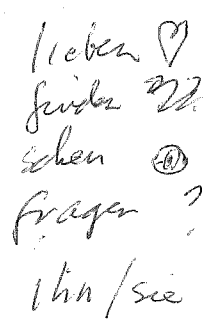 lieben ♡
finden
sehen
fragen ?
ihn / sie